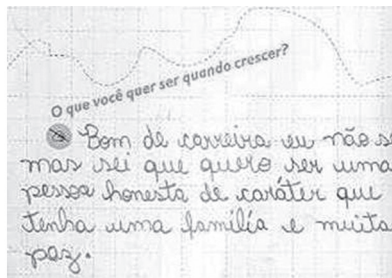 O que você quer ser quando crescer?
Bom de carreira eu não s
mas sei que quero ser uma
pessoa honesta de caráter que
tenha uma família e muita
paz.